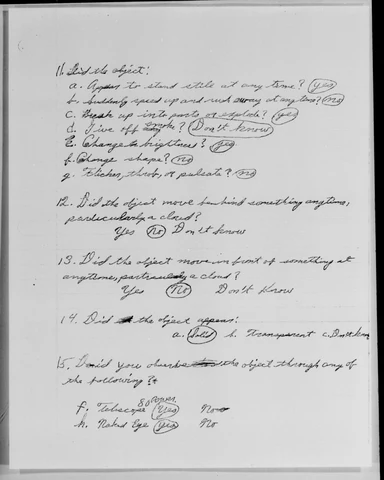 11. Did the object:
a. Appear to stand still at any time? (yes)
b. Suddenly speed up and rush away at anytime? (no)
c. Break up into parts or explode? (yes)
d. Give off smoke? (Don't know)
E. Change brightness? (yes)
f. Change shape? (no)
g. Flicker, throb, or pulsate? (no)
12. Did the object move behind something anytime,
particularly a cloud?
Yes (no) Don't know
13. Did the object move in front of something at
anytime, particularly a cloud?
Yes (No) Don't Know
14. Did the object appear:
a. (Solid) b. Transparent c. Don't know
15. Did you observe the object through any of
the following?
80 Power
f. Telescope (Yes) No
h. Naked Eye (Yes) No